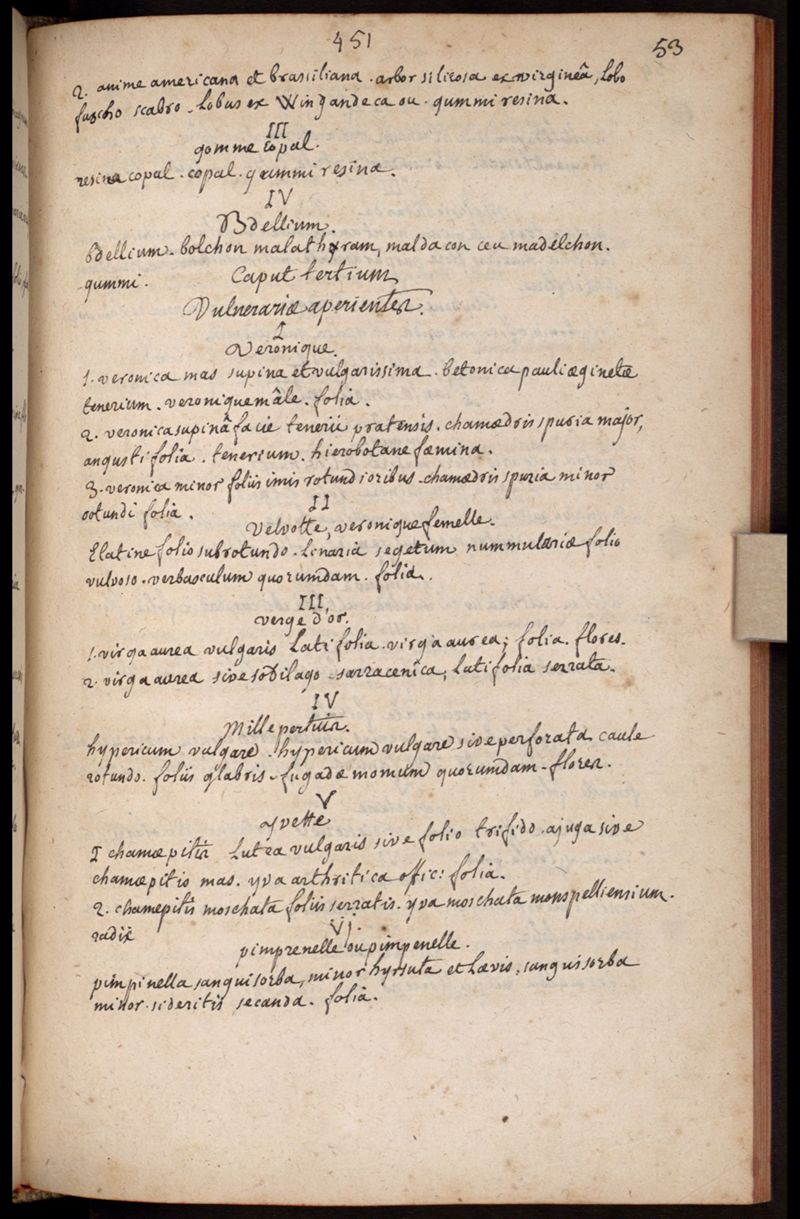 451
53
2. anime americana et brasiliana. arbor silicosa ex virgineâ, lobo
fuscho scabro. lobus ex Wingandeca ou. gummi resina.
III
gomme copal.
resina copal. copal. gummi resina.
IV
Bdellium.
Bdellium. bolchon malathyram, maldacon ceu madelchon.
gummi.
Caput tertium
Vulnerariæ aperientes.
I
Veronique.
1. veronica mas supina et vulgarissima. betonica pauli æginetæ
tenerium. veronique mâle. folia.
2. veronica supinâ facie tenerii pratensis. chamædris spuria major,
angustifolia. tenerium. hierobotane fæmina.
3. veronica minor foliis imis rotundioribus. chamædris spuria minor
rotundifolia.
II
Velvotte, veronique femelle.
Elatine folio subrotundo. linaria segetum nummulariæ folio
vulvoso. verbasculum quorumdam. folia.
III.
verge d'or.
1. virga aurea vulgaris latifolia. virga aurea; folia. flores.
2. virga aurea sive sobilago. sarracenica, latifolia serrata.
IV
Millepertuis.
hypericum vulgare. hypericum vulgare sive perforata caule
rotundo. foliis glabris. fuga dæmomum quorumdam. flores.
V
yvette
I chamæpitis lutea vulgaris sive folio trifido. ajuga sive
chamæpitis mas. yva arthritica offic: folia.
2. chamepitis moschata foliis serratis. yva moschata monspelliensium.
radix
VI.
pimprenelle ou pimpenelle.
pimpinella sanguisorba, minor hyrsuta et lævis. sanguisorba
minor. sideritis secanda. folia.